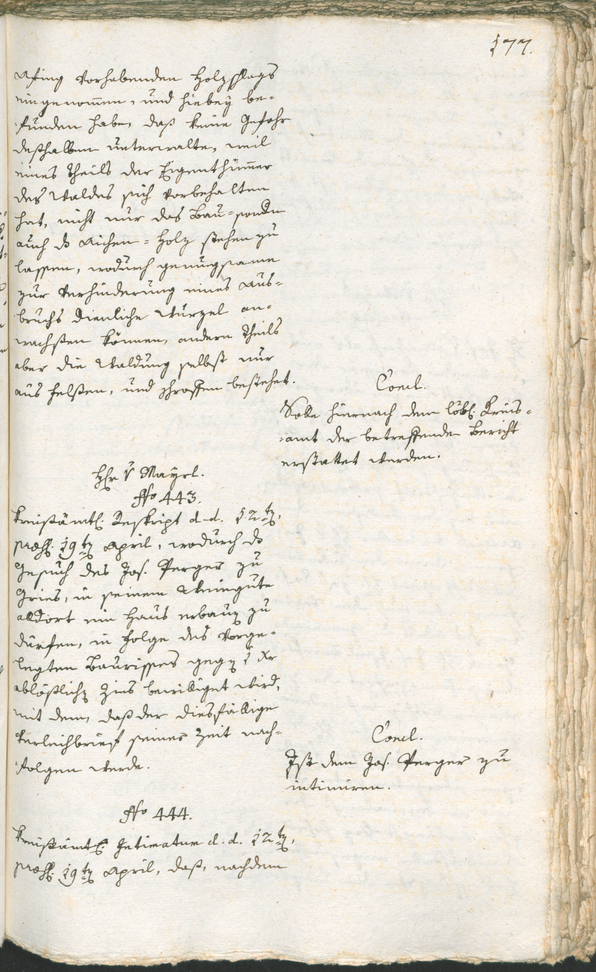 177.
Asing vorhabenden Holzschlags
eingenommen, und hiebey be-
funden habe, daß keine Gefahr
deßhalben unterwalte, weil
eines Theils der Eigenthümer
des Waldes sich vorbehalten
hat, nicht nur das Bau- sondern
auch das Aichen-Holz stehen zu
lassen, wodurch genugsame
zur Verhinderung eines Aus-
bruchs dienliche Würzel an-
wachsen können, andern Theils
aber die Waldung selbst nur
aus Felsen, und Schroffen bestehet.
Concl.
Solle hiernach dem löbl. Kreis-
amt der betreffende Bericht
erstattet werden.
Hr v Mayrl.
No 443.
Kreisämtl. Reskript d. d. 12t,
præs. 19t April, wodurch das
Gesuch des Jos. Perger zu
Gries, in seinem Weingute
alldort ein Haus erbauen zu
dürfen, in Folge des vorge-
legten Baurisses gegen 1 Kr
ablößlichen Zins bewilliget wird,
mit dem, daß der diesfällige
Verleihbrief seiner Zeit nach-
folgen werde.
Concl.
Ist dem Jos. Perger zu
intimiren.
No 444.
Kreisämtl. Intimatum d. d. 12t,
præs. 19t April, daß, nachdem